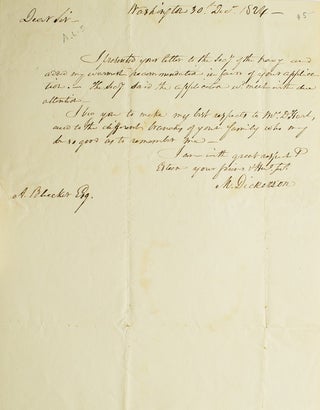 Washington 30. Decr. 1824 —
Dear Sir
A.L.S
I presented your letter to the Secy of the Navy and
added my warmest recommendation in favor of your applica
tion. — The Secy said the application wd meet with due
attention.—
I beg you to make my best respects to Mrs.
and to the different branches of your family who may
do so good as to remember me —
I am with great respect &
Esteem your friend & Hbl. Sert
M. Dickerson
A. Bleecker Esq.